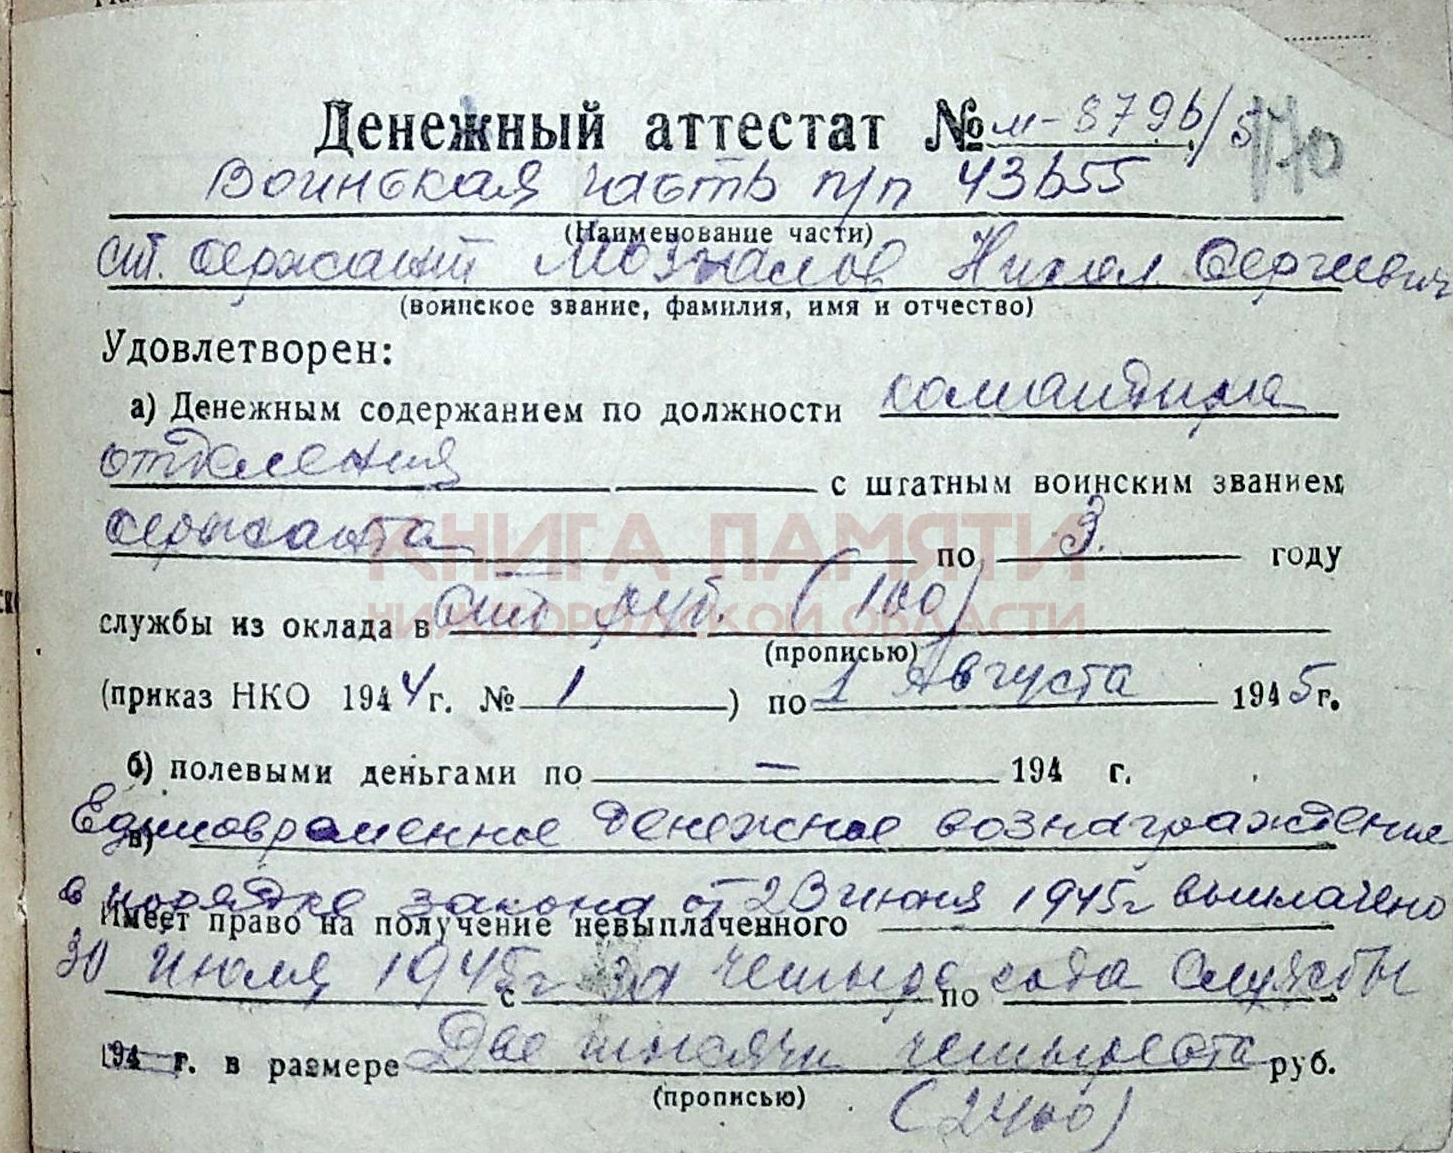 Денежный аттестат № м-879б/5 170
Воинская часть п/п 43655
(Наименование части)
ст. сержант Мозжалов Никол. Сергеевич
(воинское звание, фамилия, имя и отчество)
Удовлетворен:
а) Денежным содержанием по должности командира
отделения с штатным воинским званием
сержанта по 3. году
КНИГА ПАМЯТИ
службы из оклада в сто руб. (100)
НИЖЕГОРОДСКОЙ ОБЛАСТИ
(прописью)
(приказ НКО 1944 г. № 1) по 1 Августа 1945 г.
б) полевыми деньгами по — 194 г.
в) Единовременное денежное вознаграждение
в порядке закона от 23 июня 1945 г выплачено
Имеет право на получение невыплаченного
30 июля 1945 г за четыре года службы
с по
194 г. в размере Две тысячи четыреста руб.
(прописью) (2400)